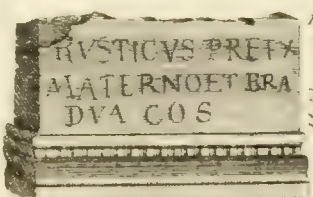 RVSTICVS PREFX
MATERNO ET BRA
DVA COS